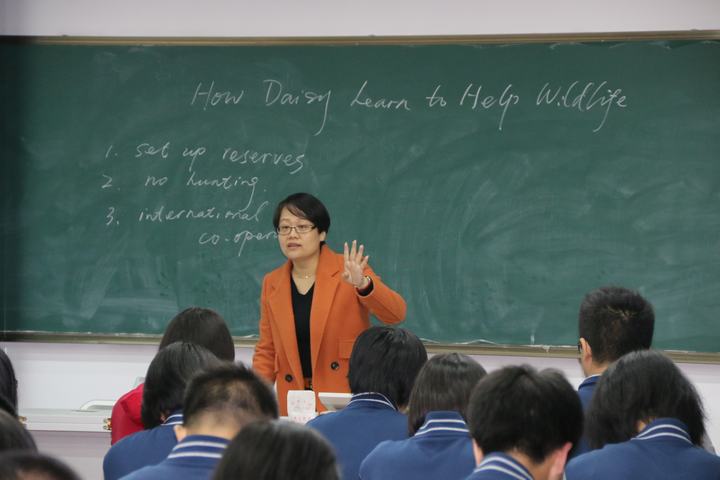 How Daisy Learn to Help Wildlife
1. set up reserves
2. no hunting.
3. international